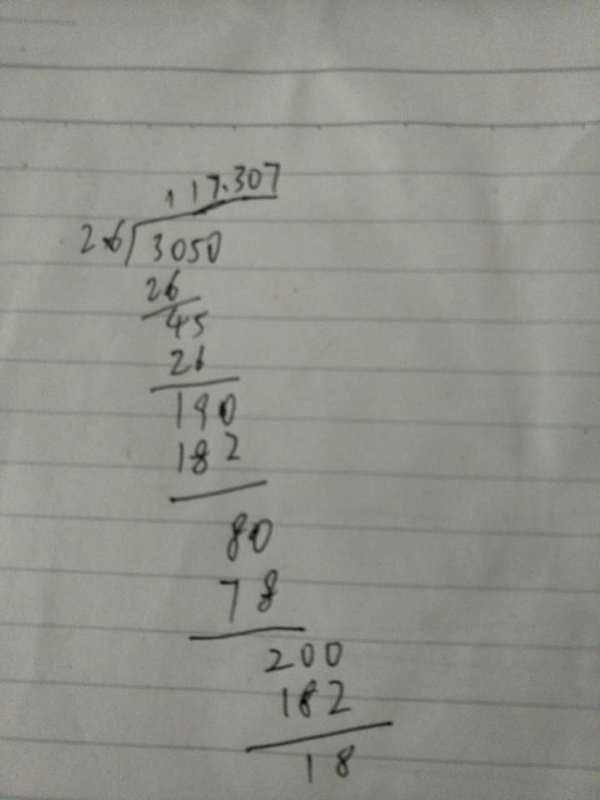 117.307
26 3050
26
45
26
190
182
80
78
200
182
18